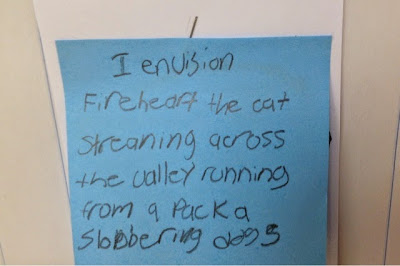 I envision
Fireheart the cat
streaning across
the valley running
from a Pack a
slobbering dogs